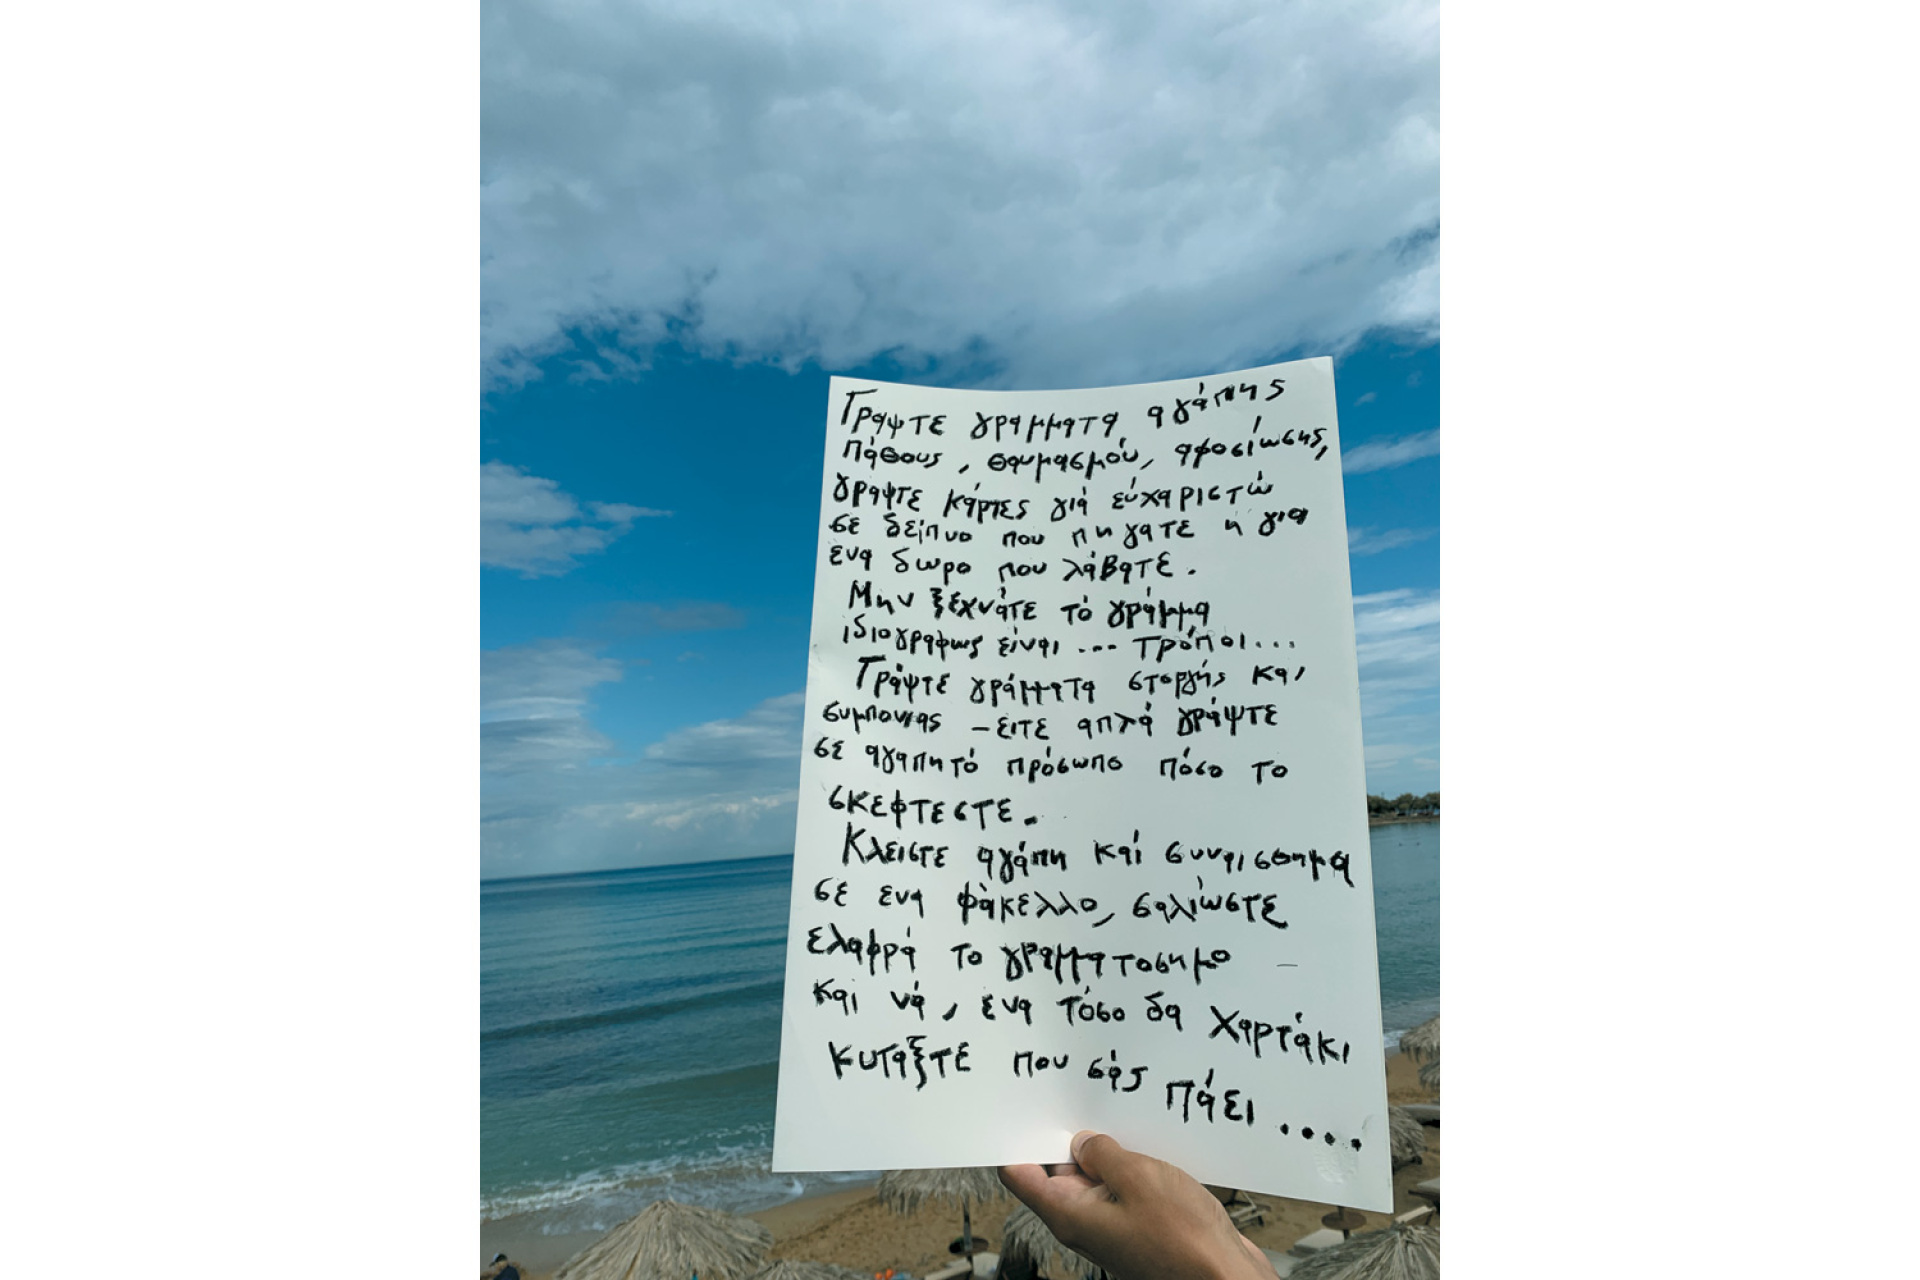 Γραψτε γραμματα αγάπης
πάθους, θαυμασμού, αφοσίωσης,
γραψτε κάρτες γιά εύχαριστώ
σε δείπνο που πηγατε η για
ενα δωρο που λάβατε.
Μην ξεχνάτε τό γράμμα
ιδιογραφως είναι ... Τρόποι...
Γράψτε γράμματα στοργής και
συμπονιας - ειτε απλά γράψτε
σε αγαπητό πρόσωπο πόσο το
σκεφτεστε.
Κλειστε αγάπη καί συναισθημα
σε ενα φάκελλο, σαλιώστε
ελαφρά το γραμματοσημο -
και νά, ενα τόσο δα χαρτάκι
κυταξτε που σάς πάει ....